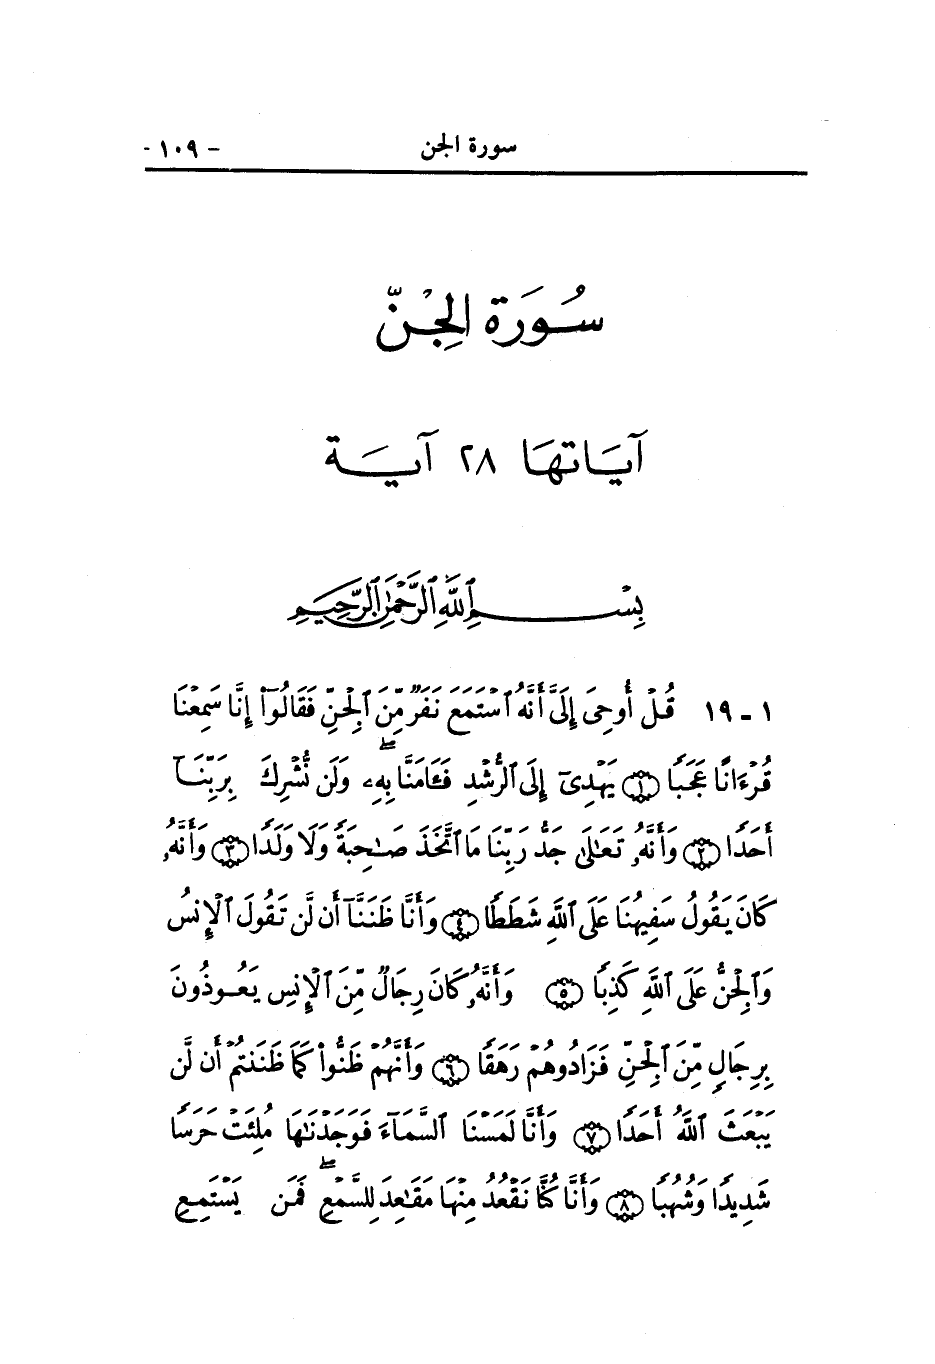 - ١٠٩ -
سورة الجن
سُورَة الجِنّ
آيَاتهَا ٢٨ آيَة
بِسْمِ ٱللَّهِ ٱلرَّحْمَٰنِ ٱلرَّحِيمِ
١ - ١٩ قُلْ أُوحِىَ إِلَىَّ أَنَّهُ ٱسْتَمَعَ نَفَرٌ مِّنَ ٱلْجِنِّ فَقَالُوٓا۟ إِنَّا سَمِعْنَا
قُرْءَانًا عَجَبًا ﴿١﴾ يَهْدِىٓ إِلَى ٱلرُّشْدِ فَـَٔامَنَّا بِهِۦ ۖ وَلَن نُّشْرِكَ بِرَبِّنَآ
أَحَدًا ﴿٢﴾ وَأَنَّهُۥ تَعَٰلَىٰ جَدُّ رَبِّنَا مَا ٱتَّخَذَ صَٰحِبَةً وَلَا وَلَدًا ﴿٣﴾ وَأَنَّهُۥ
كَانَ يَقُولُ سَفِيهُنَا عَلَى ٱللَّهِ شَطَطًا ﴿٤﴾ وَأَنَّا ظَنَنَّآ أَن لَّن تَقُولَ ٱلْإِنسُ
وَٱلْجِنُّ عَلَى ٱللَّهِ كَذِبًا ﴿٥﴾ وَأَنَّهُۥ كَانَ رِجَالٌ مِّنَ ٱلْإِنسِ يَعُوذُونَ
بِرِجَالٍ مِّنَ ٱلْجِنِّ فَزَادُوهُمْ رَهَقًا ﴿٦﴾ وَأَنَّهُمْ ظَنُّوا۟ كَمَا ظَنَنتُمْ أَن لَّن
يَبْعَثَ ٱللَّهُ أَحَدًا ﴿٧﴾ وَأَنَّا لَمَسْنَا ٱلسَّمَآءَ فَوَجَدْنَٰهَا مُلِئَتْ حَرَسًا
شَدِيدًا وَشُهُبًا ﴿٨﴾ وَأَنَّا كُنَّا نَقْعُدُ مِنْهَا مَقَٰعِدَ لِلسَّمْعِ ۖ فَمَن يَسْتَمِعِ